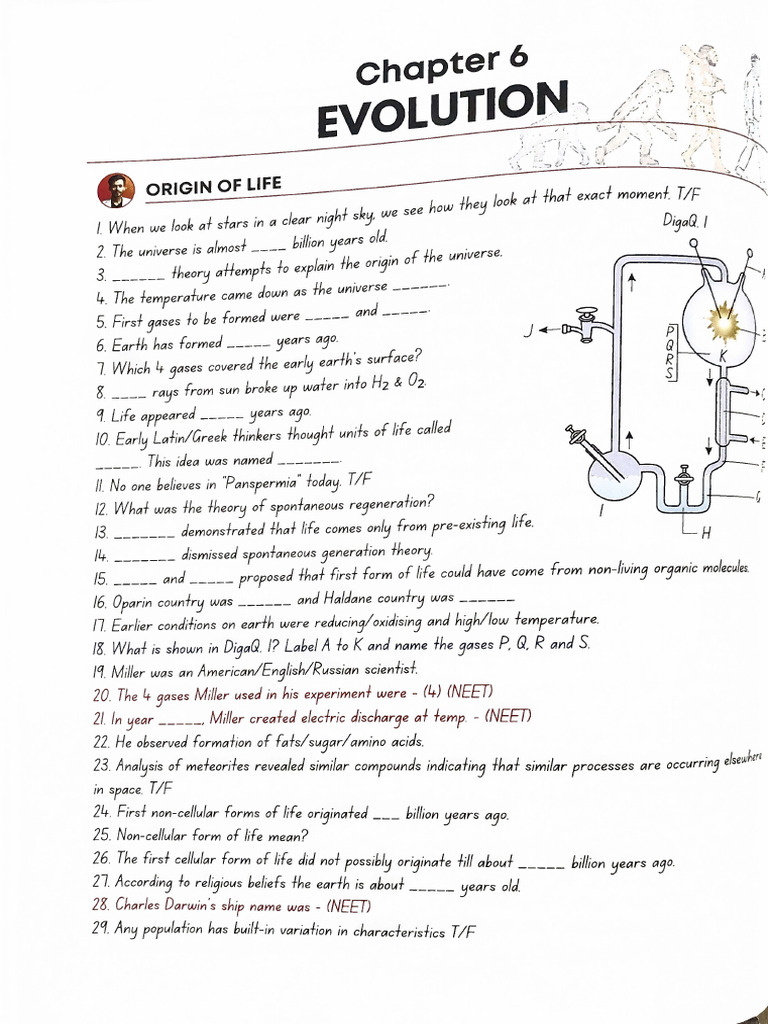 Chapter 6
EVOLUTION
ORIGIN OF LIFE
1. When we look at stars in a clear night sky, we see how they look at that exact moment. T/F
DigaQ. 1
2. The universe is almost ____ billion years old.
3. ______ theory attempts to explain the origin of the universe.
4. The temperature came down as the universe ______.
5. First gases to be formed were _____ and _____.
6. Earth has formed _____ years ago.
7. Which 4 gases covered the early earth's surface?
8. ____ rays from sun broke up water into H2 & O2.
9. Life appeared _____ years ago.
10. Early Latin/Greek thinkers thought units of life called
_____. This idea was named _______.
11. No one believes in "Panspermia" today. T/F
12. What was the theory of spontaneous regeneration?
13. _______ demonstrated that life comes only from pre-existing life.
14. _______ dismissed spontaneous generation theory.
15. _____ and _____ proposed that first form of life could have come from non-living organic molecules.
16. Oparin country was ______ and Haldane country was ______
17. Earlier conditions on earth were reducing/oxidising and high/low temperature.
18. What is shown in DigaQ. 1? Label A to K and name the gases P, Q, R and S.
19. Miller was an American/English/Russian scientist.
20. The 4 gases Miller used in his experiment were - (4) (NEET)
21. In year _____, Miller created electric discharge at temp. - (NEET)
22. He observed formation of fats/sugar/amino acids.
23. Analysis of meteorites revealed similar compounds indicating that similar processes are occurring elsewhere
in space. T/F
24. First non-cellular forms of life originated ___ billion years ago.
25. Non-cellular form of life mean?
26. The first cellular form of life did not possibly originate till about _____ billion years ago.
27. According to religious beliefs the earth is about _____ years old.
28. Charles Darwin's ship name was - (NEET)
29. Any population has built-in variation in characteristics T/F
J
P
Q
R
S
K
I
H